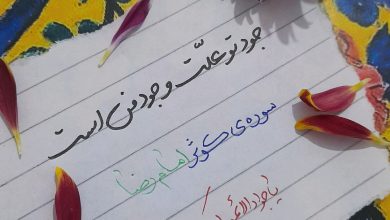 جود تو علّت وجود من است
سوره‌ی کوثر امام رضا
یا جواد الأئمـ